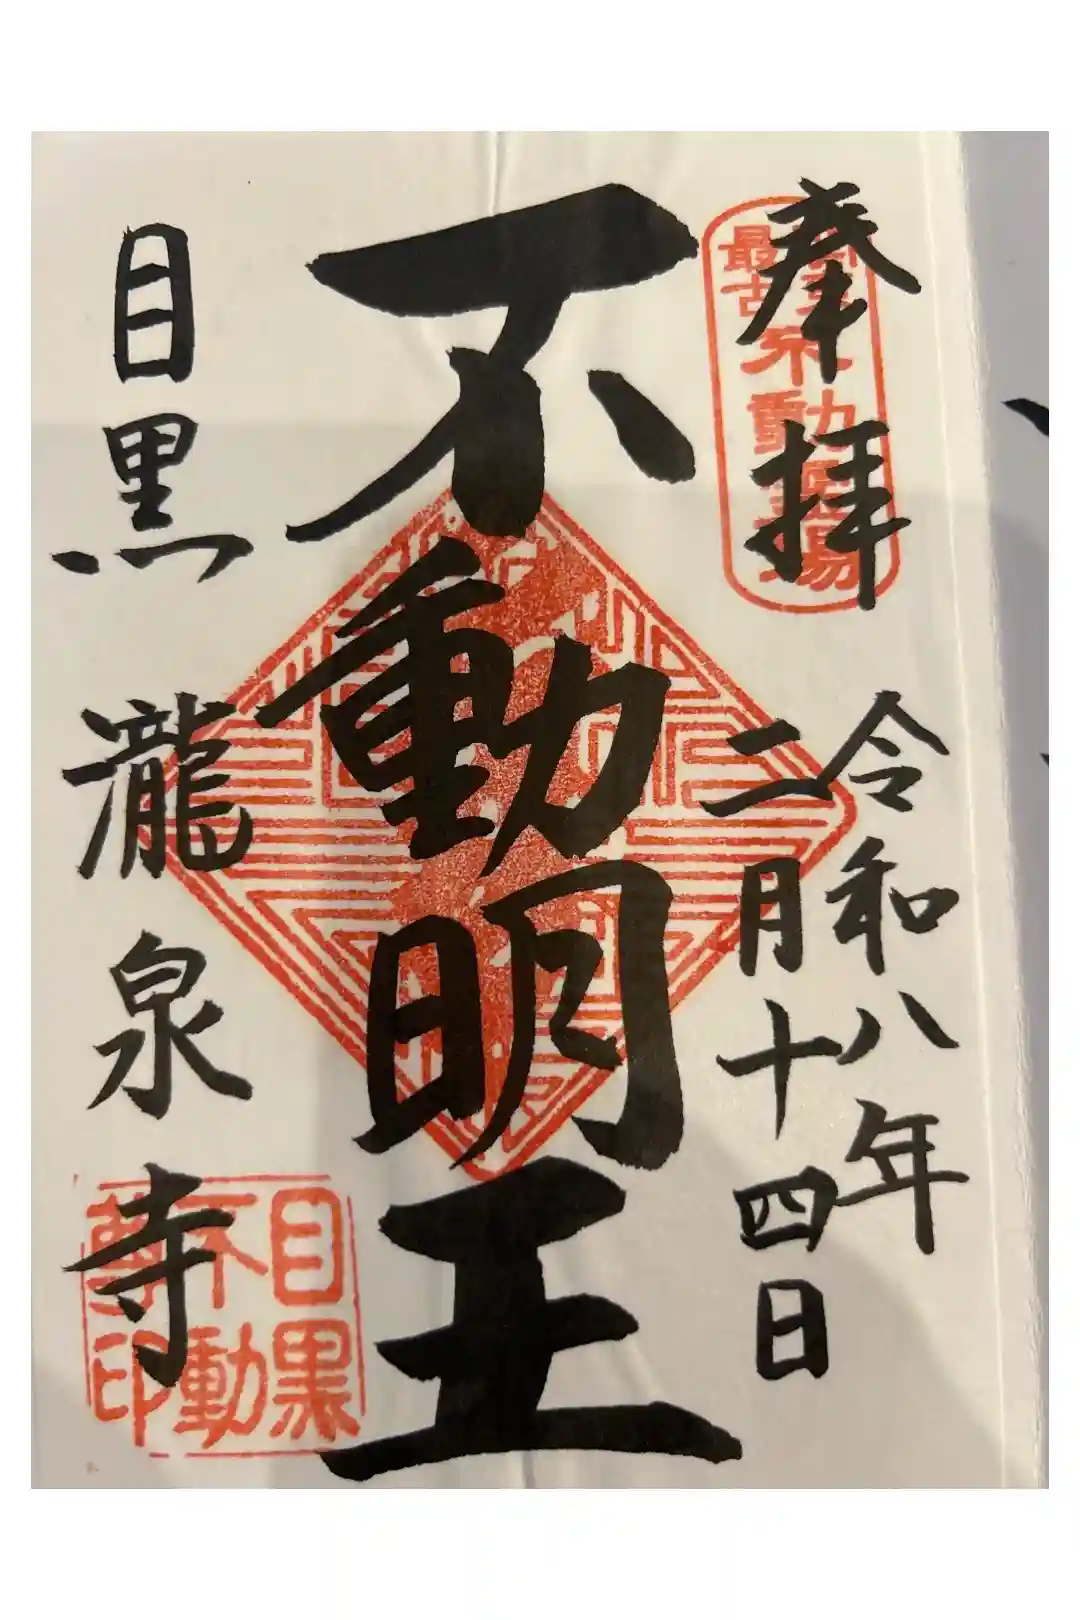 奉拝
令和八年
二月十四日
不動明王
目黒
瀧泉寺
最古不動霊場
目黒
不動
尊印